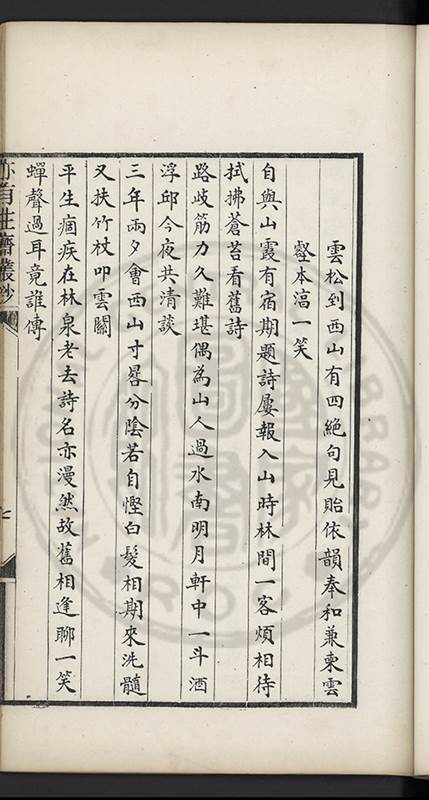 雲松到西山有四絕句見貽依韻奉和兼柬雲
壑本滈一笑
自與山霞有宿期題詩屢報入山時林間一客煩相待
拭拂蒼苔看舊詩
路歧筋力久難堪偶為山人過水南明月軒中一斗酒
浮邱今夜共清談
三年兩夕會西山寸晷分陰若自慳白髮相期來洗髓
又扶竹杖叩雲關
平生痼疾在林泉老去詩名亦漫然故舊相逢聊一笑
蟬聲過耳竟誰傳
亦有生齋叢鈔